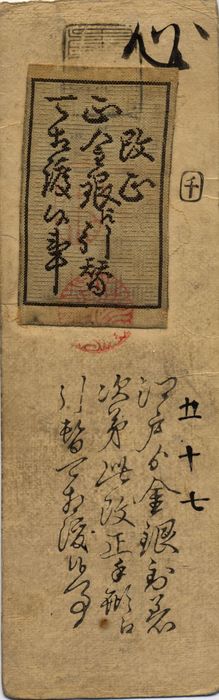 心
改正
正金銀ニ引替
可相渡候事
千
五十七
江戸ゟ金銀到着
次第此改正手形ニ
引替可相渡候事